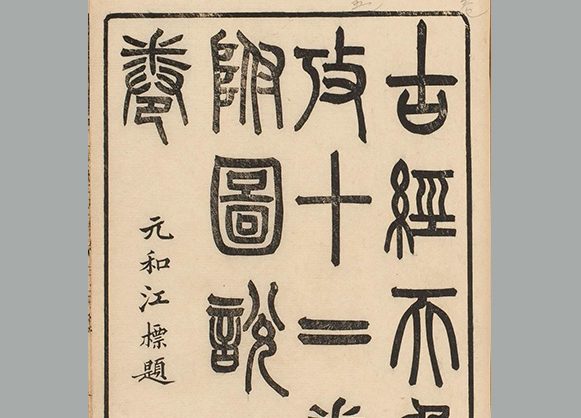 古經天
攷十二
附圖說
卷
元和江標題